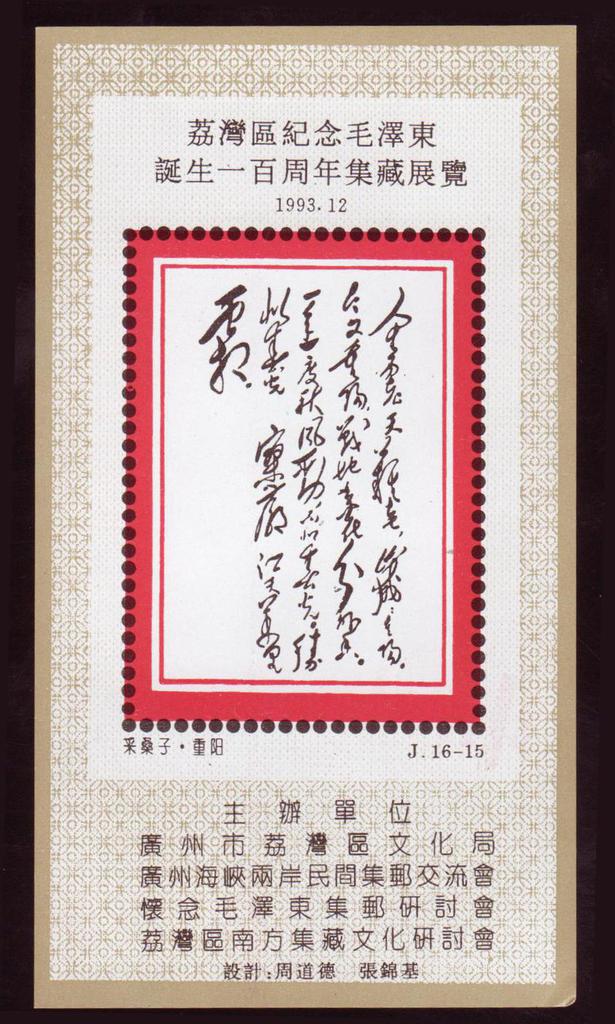 荔灣區紀念毛澤東
誕生一百周年集藏展覽
1993.12
人生易老天難老,歲歲重陽。
今又重陽,戰地黃花分外香。
一年一度秋風勁,不似春光。勝
似春光 寥廓江天萬里
霜。
采桑子·重阳
J.16-15
主辦單位
廣州市荔灣區文化局
廣州海峽兩岸民間集郵交流會
懷念毛澤東集郵研討會
荔灣區南方集藏文化研討會
設計:周道德 張錦基